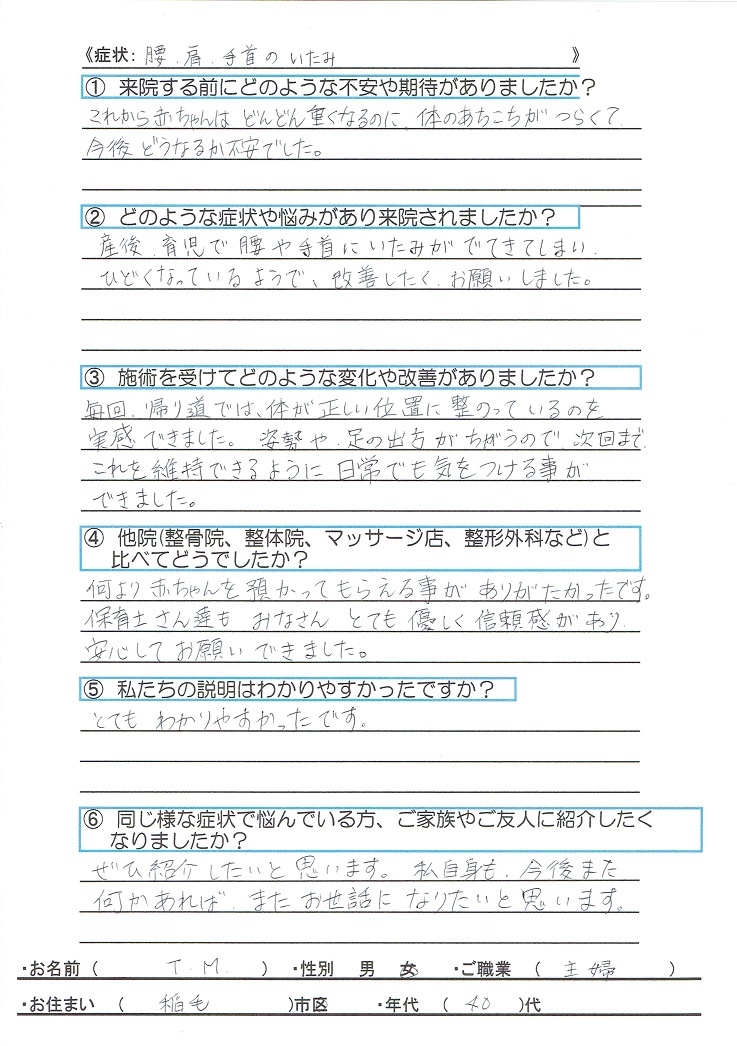 《症状: 腰、肩、手首のいたみ 》
① 来院する前にどのような不安や期待がありましたか？
これから赤ちゃんは どんどん重くなるのに、体のあちこちが つらくて、
今後どうなるか不安でした。
② どのような症状や悩みがあり来院されましたか？
産後、育児で腰や手首にいたみが でてきてしまい、
ひどくなっているようで、改善したく、お願いしました。
③ 施術を受けてどのような変化や改善がありましたか？
毎回、帰り道では、体が正しい位置に整のっているのを
実感できました。 姿勢や、足の出方がちがうので、次回まで、
これを維持できるように日常でも気をつける事が
できました。
④ 他院(整骨院、整体院、マッサージ店、整形外科など)と
比べてどうでしたか？
何より赤ちゃんを預かってもらえる事が ありがたかったです。
保育士さん達も みなさん とても優しく信頼感があり、
安心してお願いできました。
⑤ 私たちの説明はわかりやすかったですか？
とても わかりやすかったです。
⑥ 同じ様な症状で悩んでいる方、ご家族やご友人に紹介したく
なりましたか？
ぜひ紹介したいと思います。 私自身も、今後また
何かあれば、またお世話になりたいと思います。
・お名前 ( T.M. ) ・性別 男 女 ・ご職業 ( 主婦 )
・お住まい ( 稲毛 )市区 ・年代 ( 40 )代